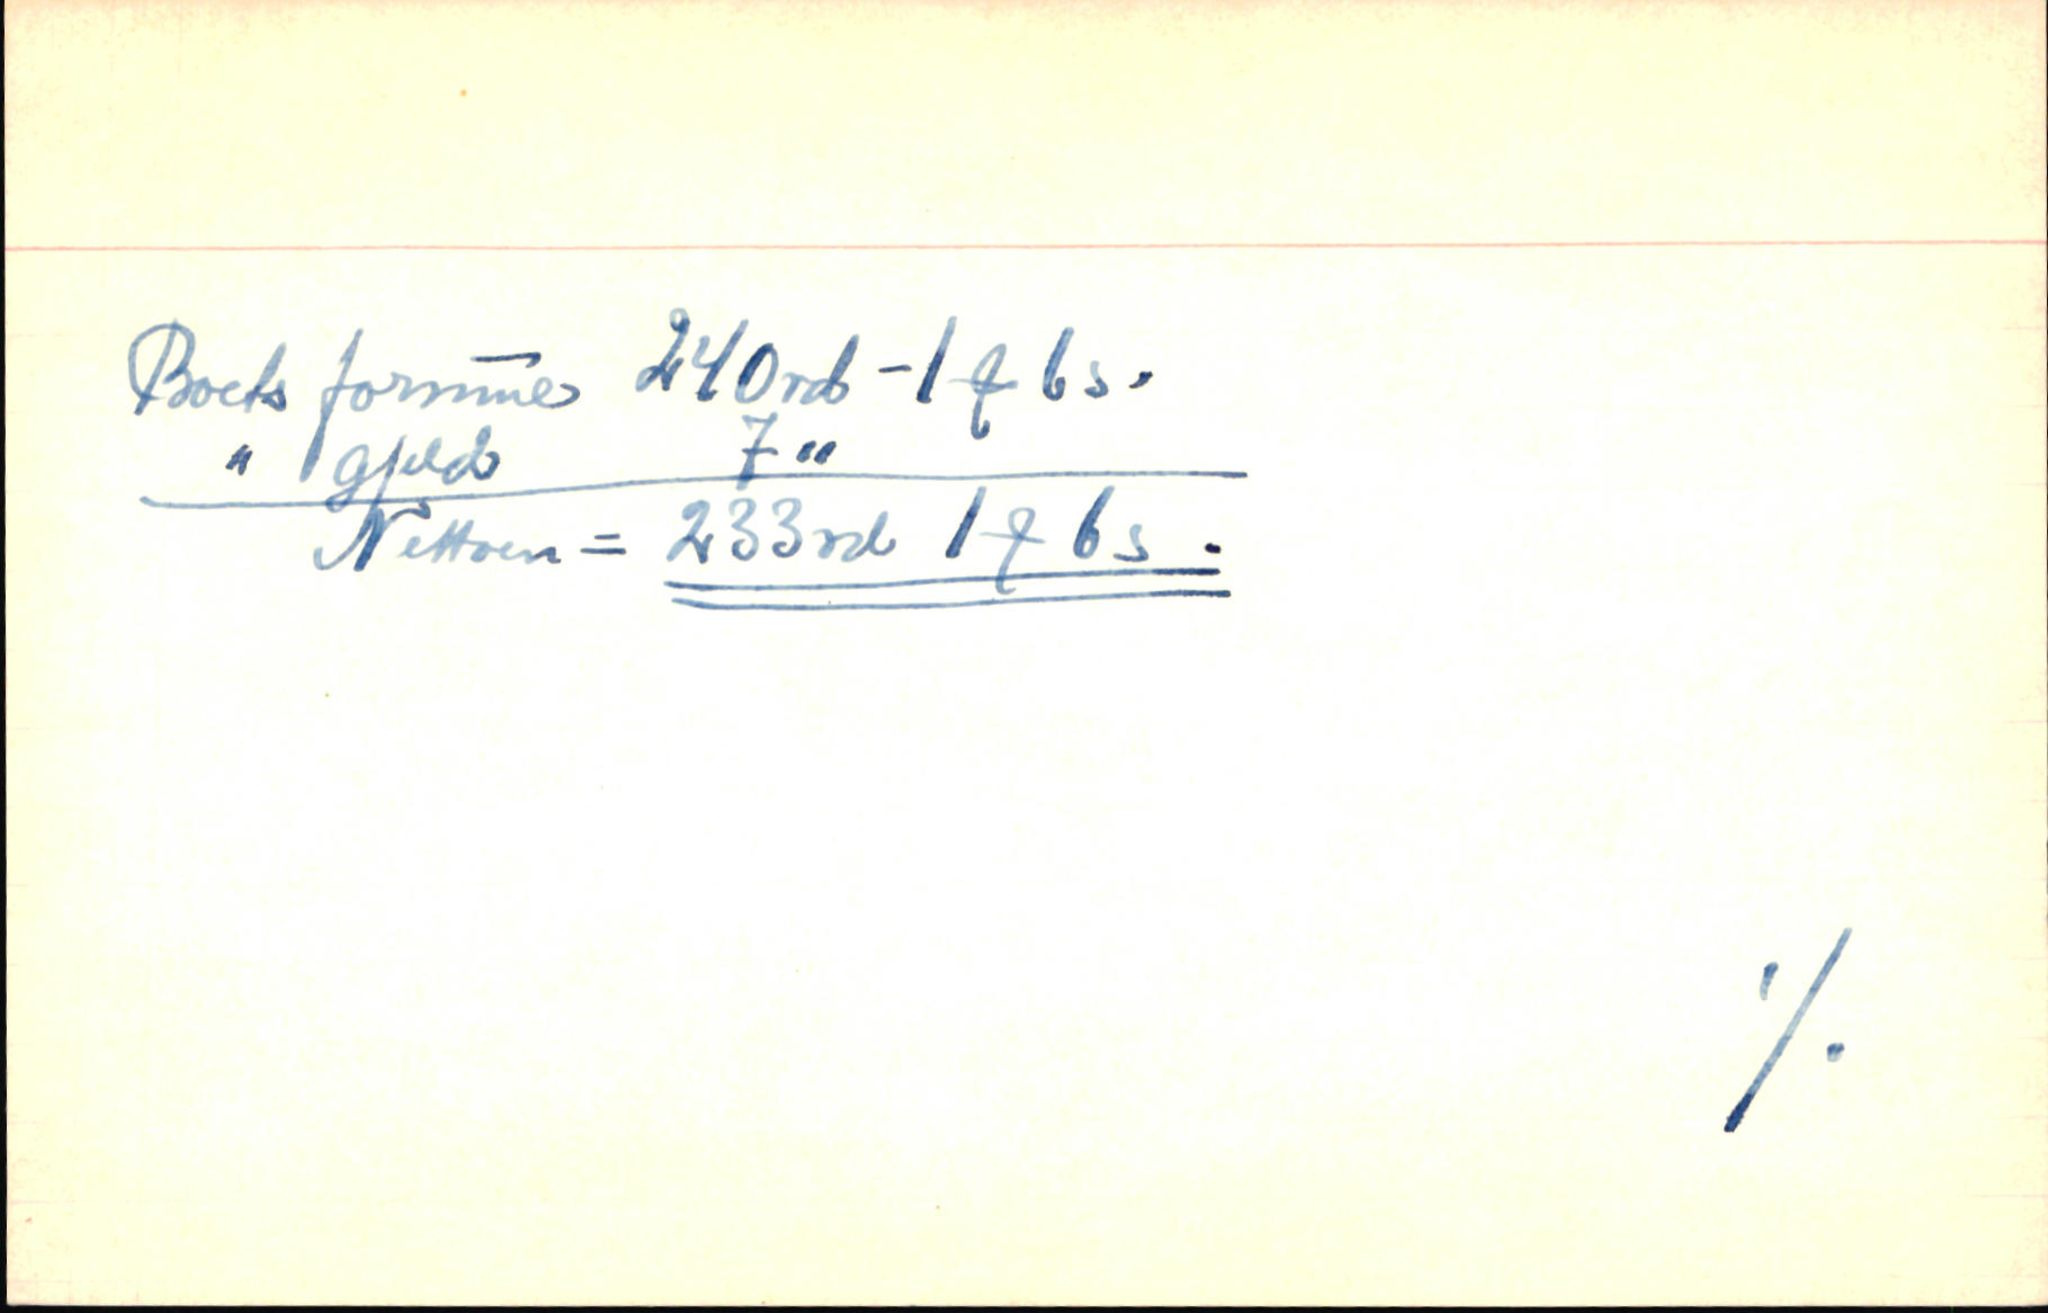 Boets formūe 240 rd - 1 ƒ 6 s.
" gjeld 7 "
Nettoen = 233 rd 1 ƒ 6 s.
·/.